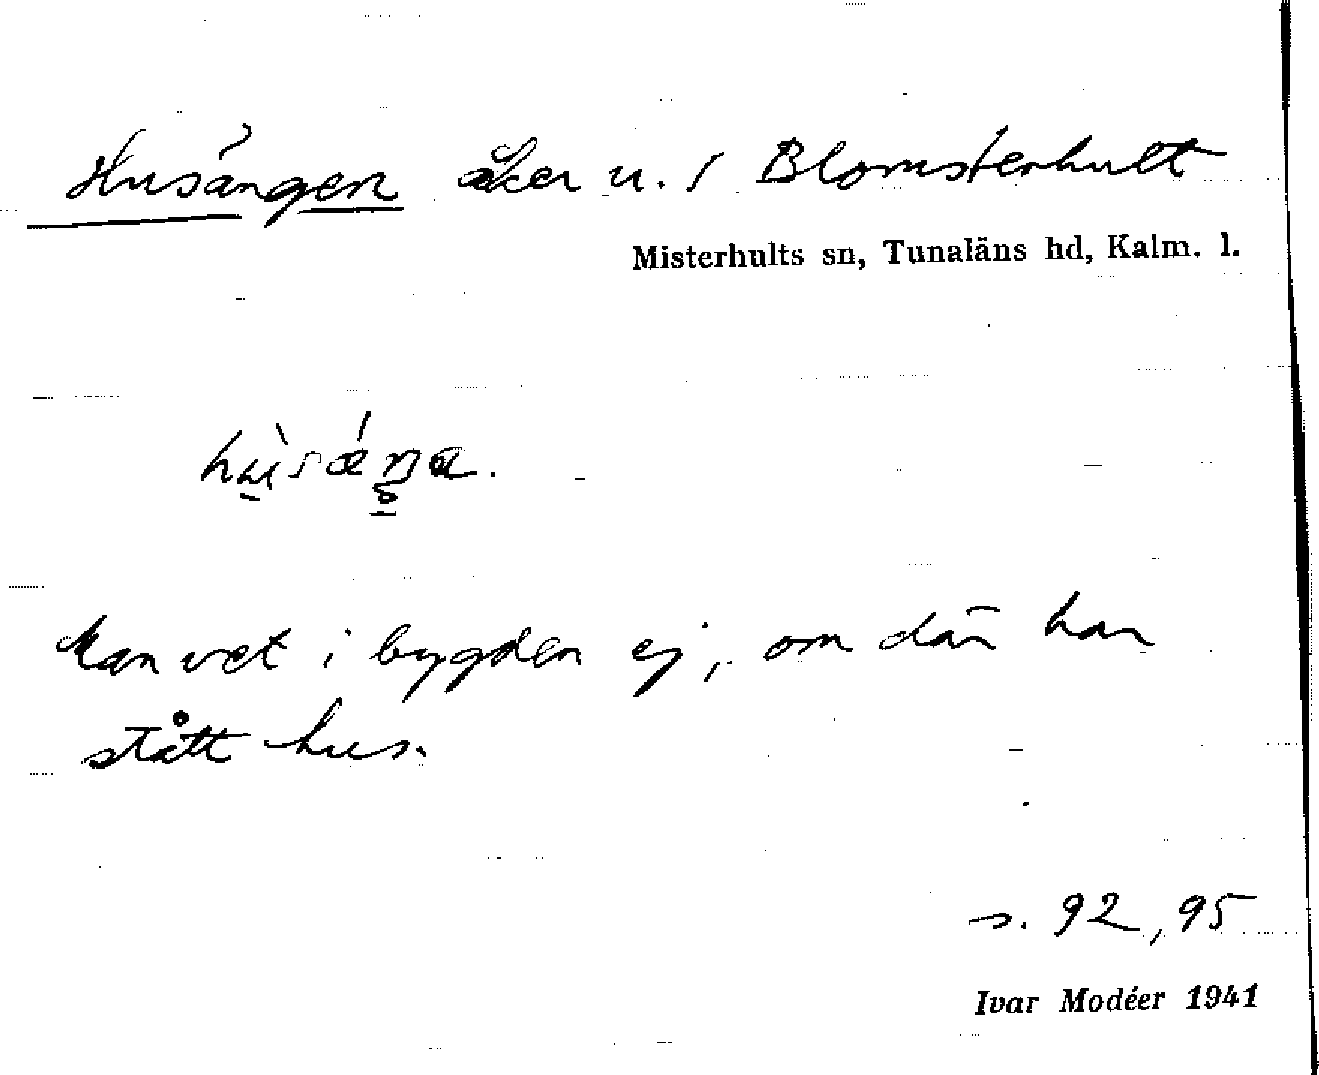 Husängen åker u. / Blomsterhult
Misterhults sn, Tunaläns hd, Kalm. l.
Man vet i bygden ej, om där har
stått hus.
s. 92, 95
Ivar Modéer 1941